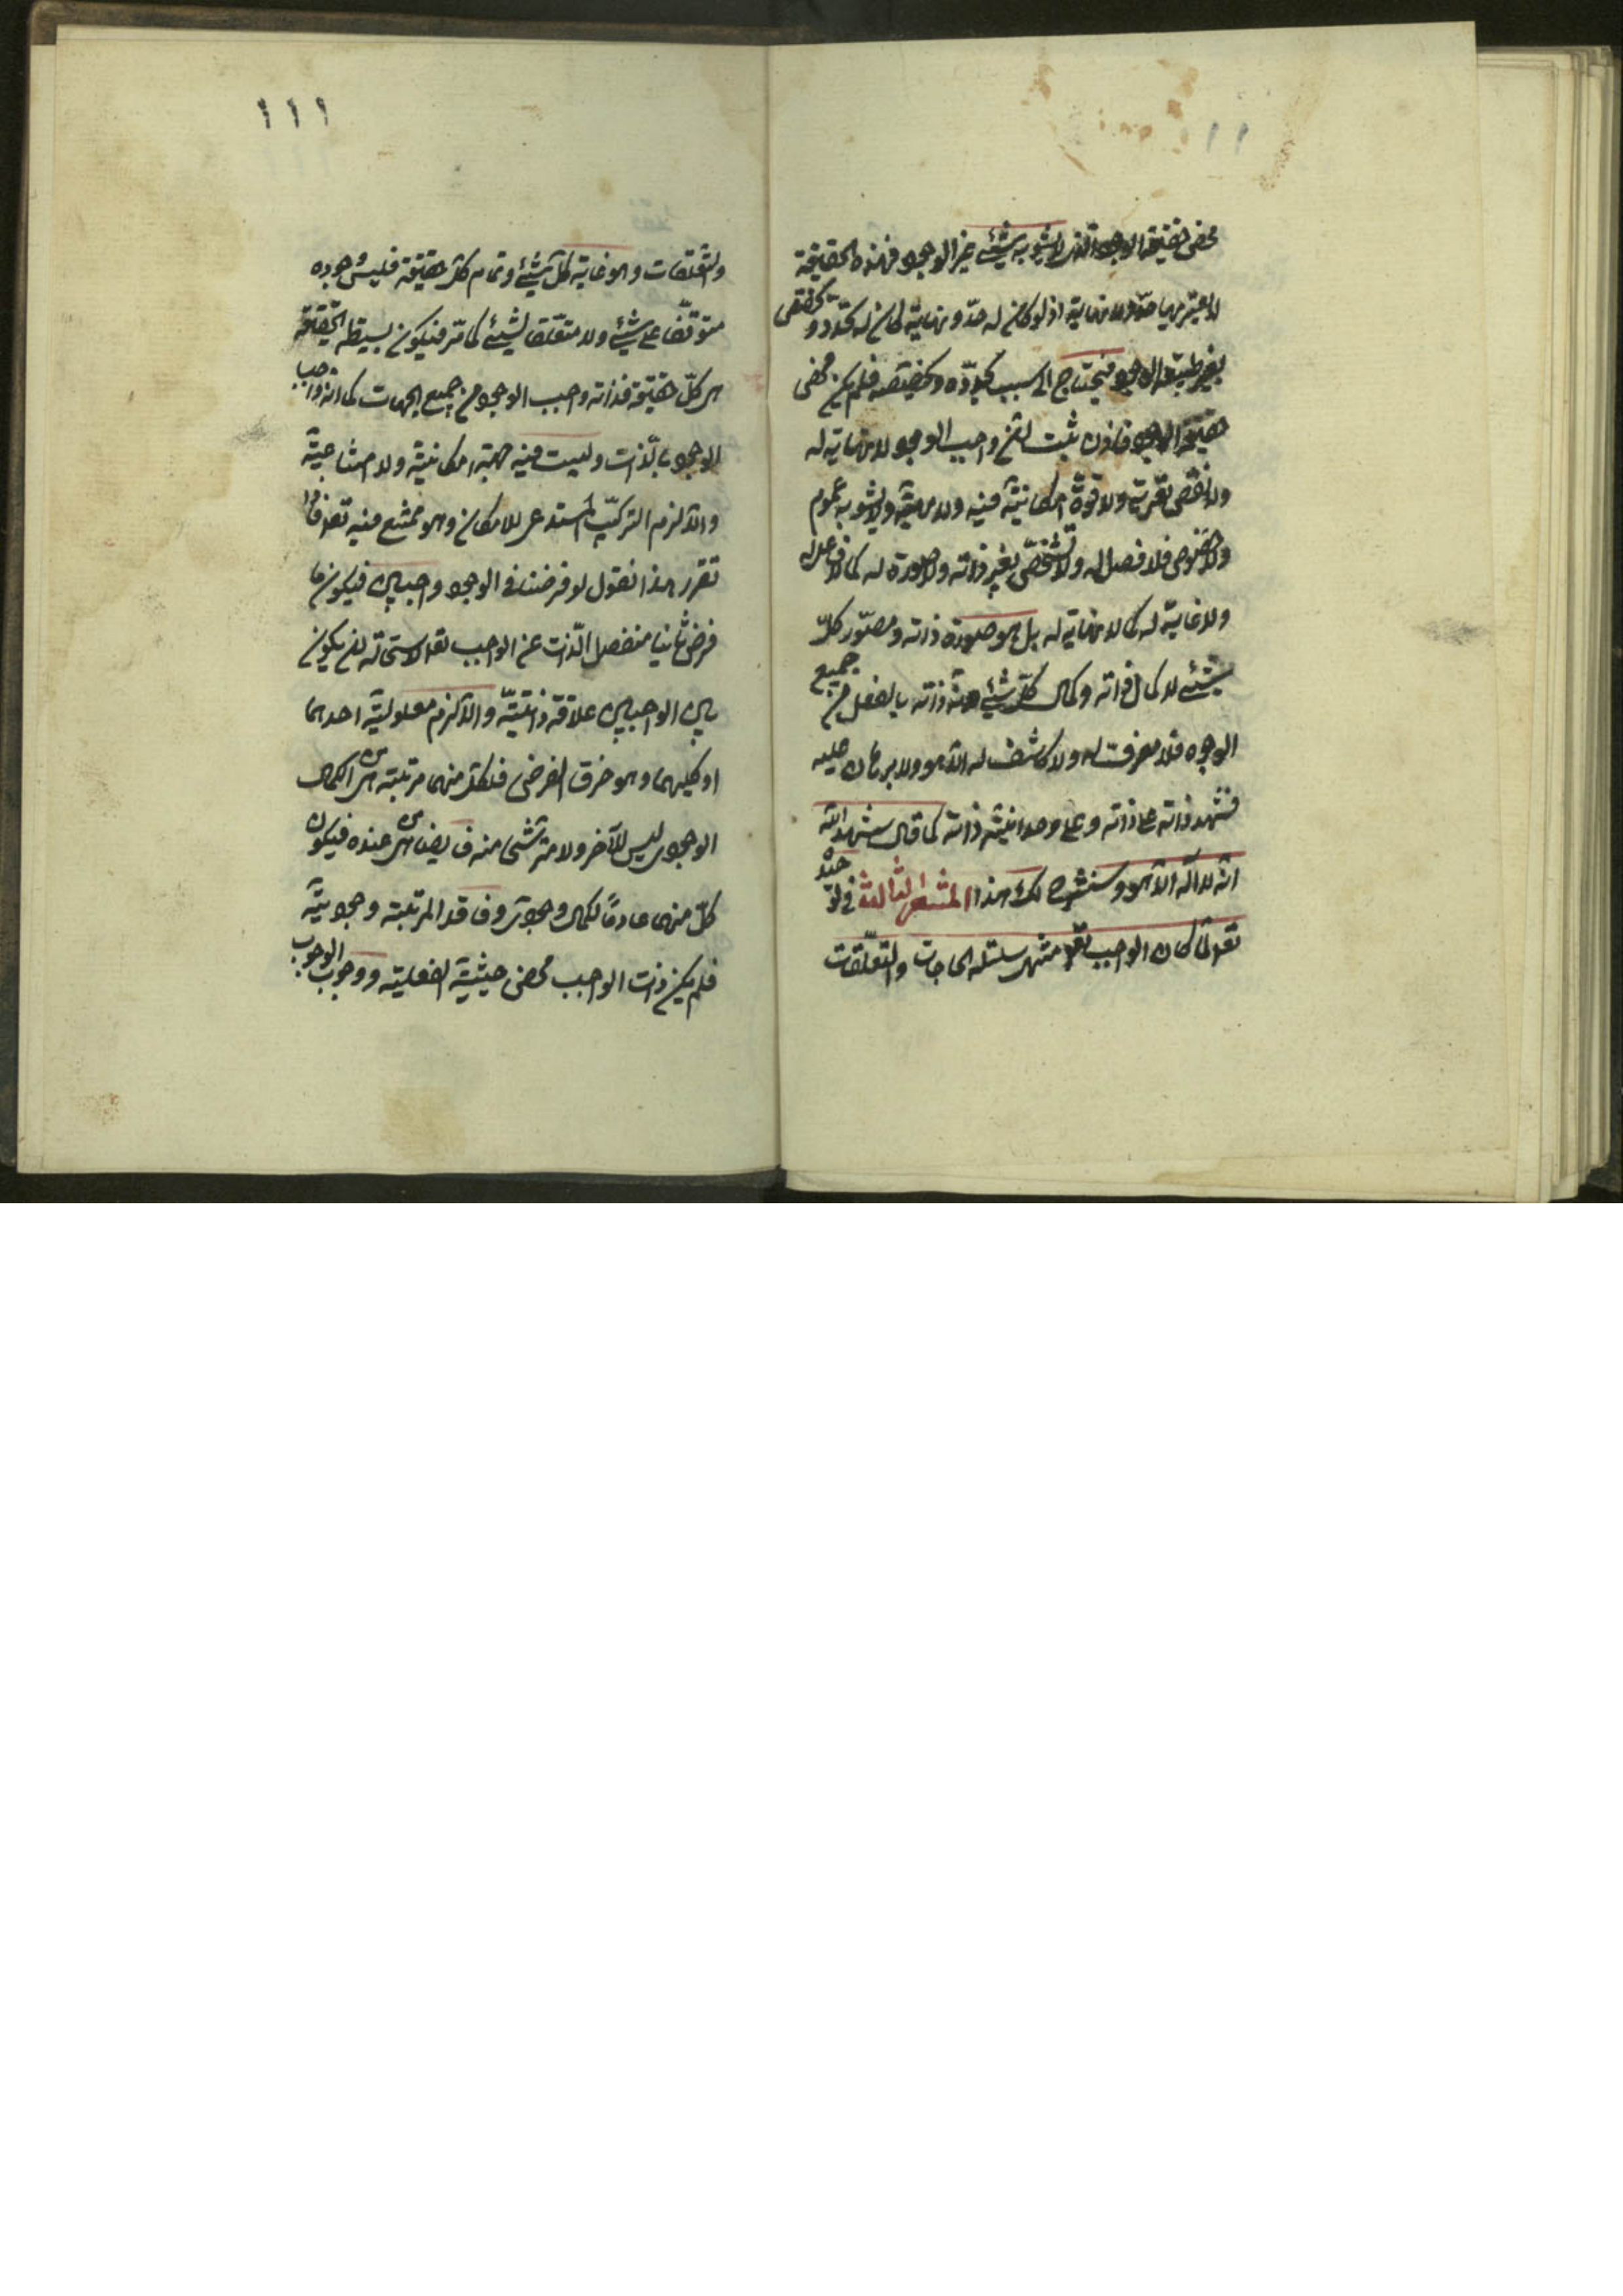 ١١
محض حقيقة الوجود الّذى لا يشوبه شيئ غير الوجود فهذه الحقيقة
لا يعتريها حدّ ولا نهاية اذ لو كان له حدّ و نهاية لكان له تحدّد و تخصّص
بغير طبيعة الوجود فيحتاج الى سبب يحدّده و يخصّصه فلم يكن محض
حقيقة الوجود فاذن ثبت ان واجب الوجود لا نهاية له
ولا نقص يعتريه ولا قوة امكانيّة فيه ولا ماهيّة ولا يشوبه عموم
ولا خصوص فلا فصل له ولا تشخّص بغير ذاته ولا صورة له كما لا فاعل له
ولا غاية له كما لا نهاية له بل هو صورة ذاته ومصوّر كلّ
شيئ لانه كمال ذاته وكمال كلّ شيئ لانّ ذاته بالفعل من جميع
الوجوه فلا معرف له ولا كاشف له الّا هو ولا برهان عليه
فشهد ذاته على ذاته وعلى وحدانيّة ذاته كما قال شهد الله
انّه لا اله الّا هو وسنشرح لك هذا المشعر الثالث فى توحيده
تعالى لمّا كان الواجب تعالى منتهى سلسلة الحاجات والتعلّقات
١١١
والتعلّقات وهو غاية كلّ شيئ وتمام كلّ حقيقة فليس وجوده
متوقّفا على شيئ ولا متعلّقا لشيئ كما مرّ فيكون بسيط الحقيقة
من كلّ حقيقة فذاته واجب الوجود من جميع الجهات كما انه واجب
الوجود بالّذات وليست فيه جهة امكانيّة ولا امتناعيّة
والّا لزم التركيب المستدعى للامكان وهو ممتنع فيه تعالى فاذا
تقرر هذا نقول لو فرضنا فى الوجود واجبين فيكون ما
فرض ثانيا منفصل الذّات عن الواجب تعالى لاستحالة ان يكون
بين الواجبين علاقة ذاتيّة والّا لزم معلوليّة احدهما
او كليهما وهو خرق الفرض فلكلّ منهما مرتبة من الكمال
الوجودى ليس للآخر ولا مترشّحى منه فايضا من عنده فيكون
كلّ منهما عادمًا لكمال وجودى وفاقد المرتبة وجوديّة
فلم يكن ذات الواجب محض حيثيّة الفعلية ووجوب الوجوب